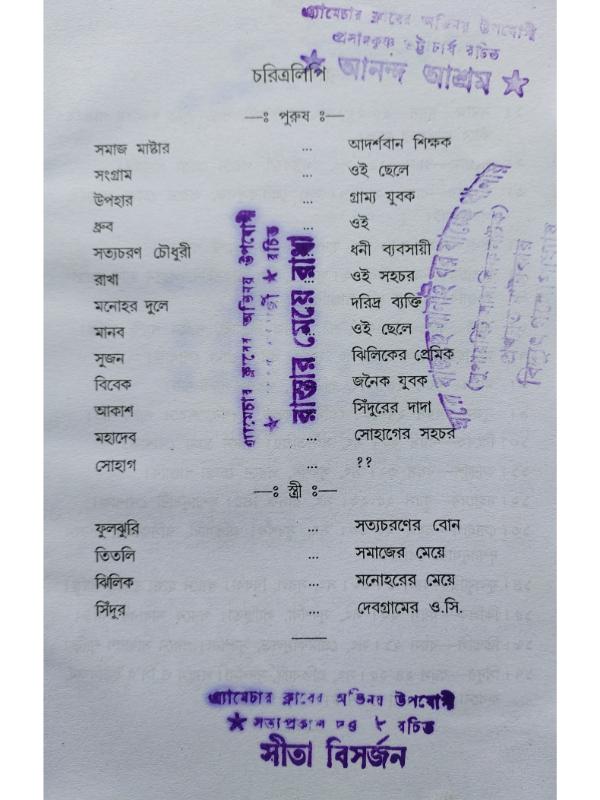 এ্যামেচার ক্লাবের অভিনয় উপযোগী
প্রসাদকৃষ্ণ ভট্টাচার্য রচিত
★ আনন্দ আশ্রম ★
চরিত্রলিপি
—ঃ পুরুষ ঃ—
সমাজ মাষ্টার ... আদর্শবান শিক্ষক
সংগ্রাম ... ওই ছেলে
উপহার গ্রাম্য যুবক
ধ্রুব ওই
সত্যচরণ চৌধুরী ধনী ব্যবসায়ী
রাখা ওই সহচর
মনোহর দুলে দরিদ্র ব্যক্তি
মানব ওই ছেলে
সুজন ঝিলিকের প্রেমিক
বিবেক জনৈক যুবক
আকাশ সিঁদুরের দাদা
মহাদেব ... সোহাগের সহচর
সোহাগ ... ??
—ঃ স্ত্রী ঃ—
ফুলঝুরি ... সত্যচরণের বোন
তিতলি ... সমাজের মেয়ে
ঝিলিক ... মনোহরের মেয়ে
সিঁদুর ... দেবগ্রামের ও.সি.
এ্যামেচার ক্লাবের অভিনয় উপযোগী
★ রচিত
রাস্তার মেয়ে রাখী
এ্যামেচার ক্লাবের অভিনয় উপযোগী
★ সত্যপ্রকাশ দত্ত ★ রচিত
সীতা বিসর্জন